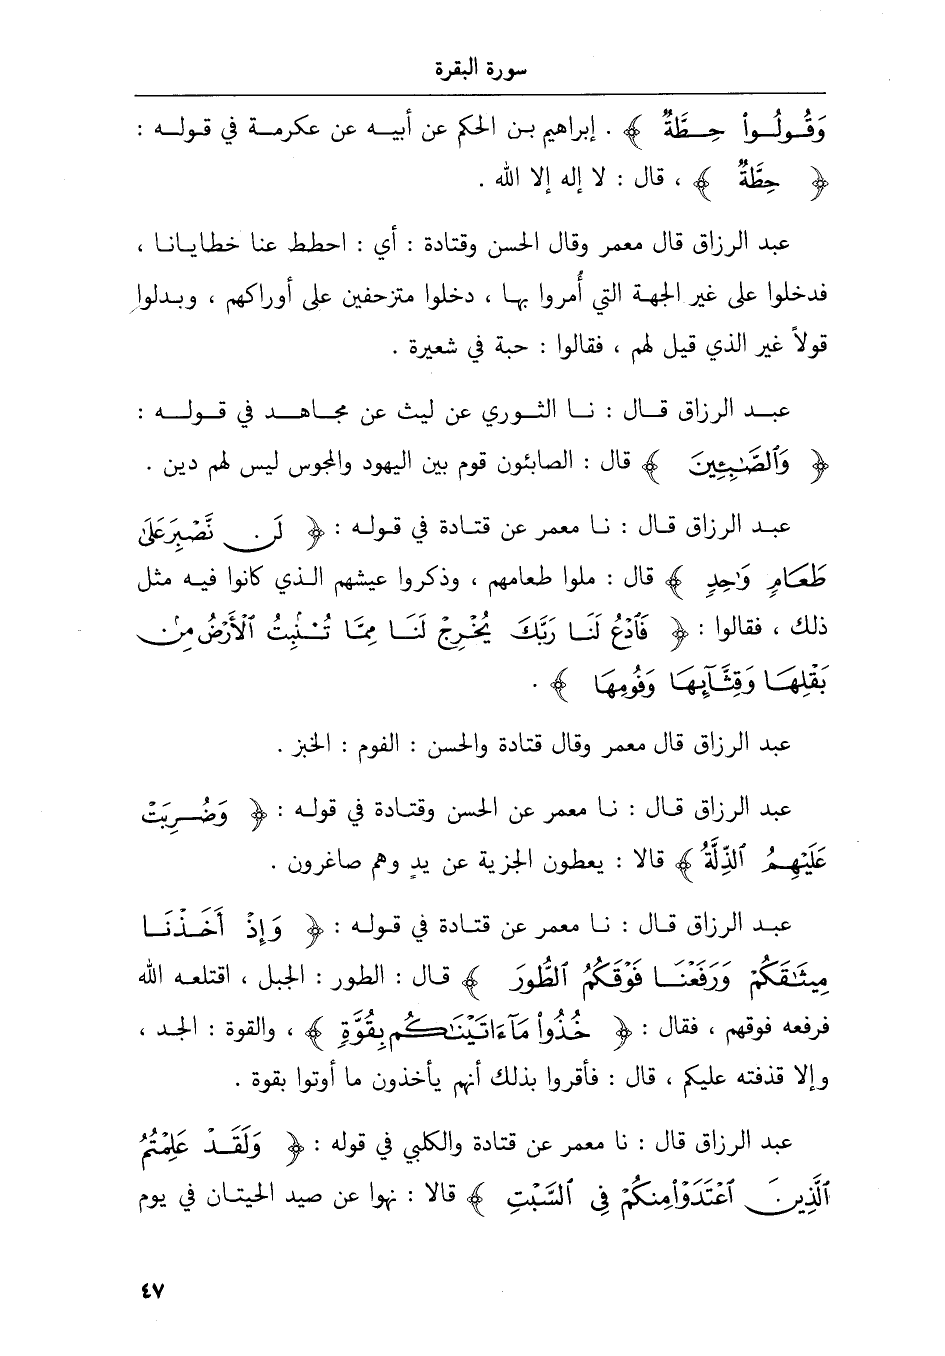 سورة البقرة
وَقُولُواْ حِطَّةٌ ﴾ . إبراهيم بن الحكم عن أبيه عن عكرمة في قوله :
﴿ حِطَّةٌ ﴾ ، قال : لا إله إلا الله .
عبد الرزاق قال معمر وقال الحسن وقتادة : أي : احطط عنا خطايانا ،
فدخلوا على غير الجهة التي أُمروا بها ، دخلوا متزحفين على أوراكهم ، وبدلوا
قولاً غير الذي قيل لهم ، فقالوا : حبة في شعيرة .
عبد الرزاق قال : نا الثوري عن ليث عن مجاهد في قوله :
﴿ وَٱلصَّٰبِـِٔينَ ﴾ قال : الصابئون قوم بين اليهود والمجوس ليس لهم دين .
عبد الرزاق قال : نا معمر عن قتادة في قوله : ﴿ لَن نَّصْبِرَ عَلَىٰ
طَعَامٍ وَٰحِدٍ ﴾ قال : ملوا طعامهم ، وذكروا عيشهم الذي كانوا فيه مثل
ذلك ، فقالوا : ﴿ فَٱدْعُ لَنَا رَبَّكَ يُخْرِجْ لَنَا مِمَّا تُنۢبِتُ ٱلْأَرْضُ مِنۢ
بَقْلِهَا وَقِثَّآئِهَا وَفُومِهَا ﴾ .
عبد الرزاق قال معمر وقال قتادة والحسن : الفوم : الخبز .
عبد الرزاق قال : نا معمر عن الحسن وقتادة في قوله : ﴿ وَضُرِبَتْ
عَلَيْهِمُ ٱلذِّلَّةُ ﴾ قالا : يعطون الجزية عن يدٍ وهم صاغرون .
عبد الرزاق قال : نا معمر عن قتادة في قوله : ﴿ وَإِذْ أَخَذْنَا
مِيثَٰقَكُمْ وَرَفَعْنَا فَوْقَكُمُ ٱلطُّورَ ﴾ قال : الطور : الجبل ، اقتلعه الله
فرفعه فوقهم ، فقال : ﴿ خُذُواْ مَآ ءَاتَيْنَٰكُم بِقُوَّةٍ ﴾ ، والقوة : الجد ،
وإلا قذفته عليكم ، قال : فأقروا بذلك أنهم يأخذون ما أوتوا بقوة .
عبد الرزاق قال : نا معمر عن قتادة والكلبي في قوله : ﴿ وَلَقَدْ عَلِمْتُمُ
ٱلَّذِينَ ٱعْتَدَوْاْ مِنكُمْ فِى ٱلسَّبْتِ ﴾ قالا : نهوا عن صيد الحيتان في يوم
٤٧